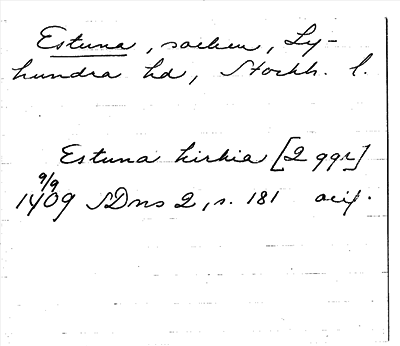 Estuna, socken, Ly-
hundra hd, Stockh. l.
Estuna kirkia [2 ggr]
9/9
1409 SDns 2, s. 181 orig.